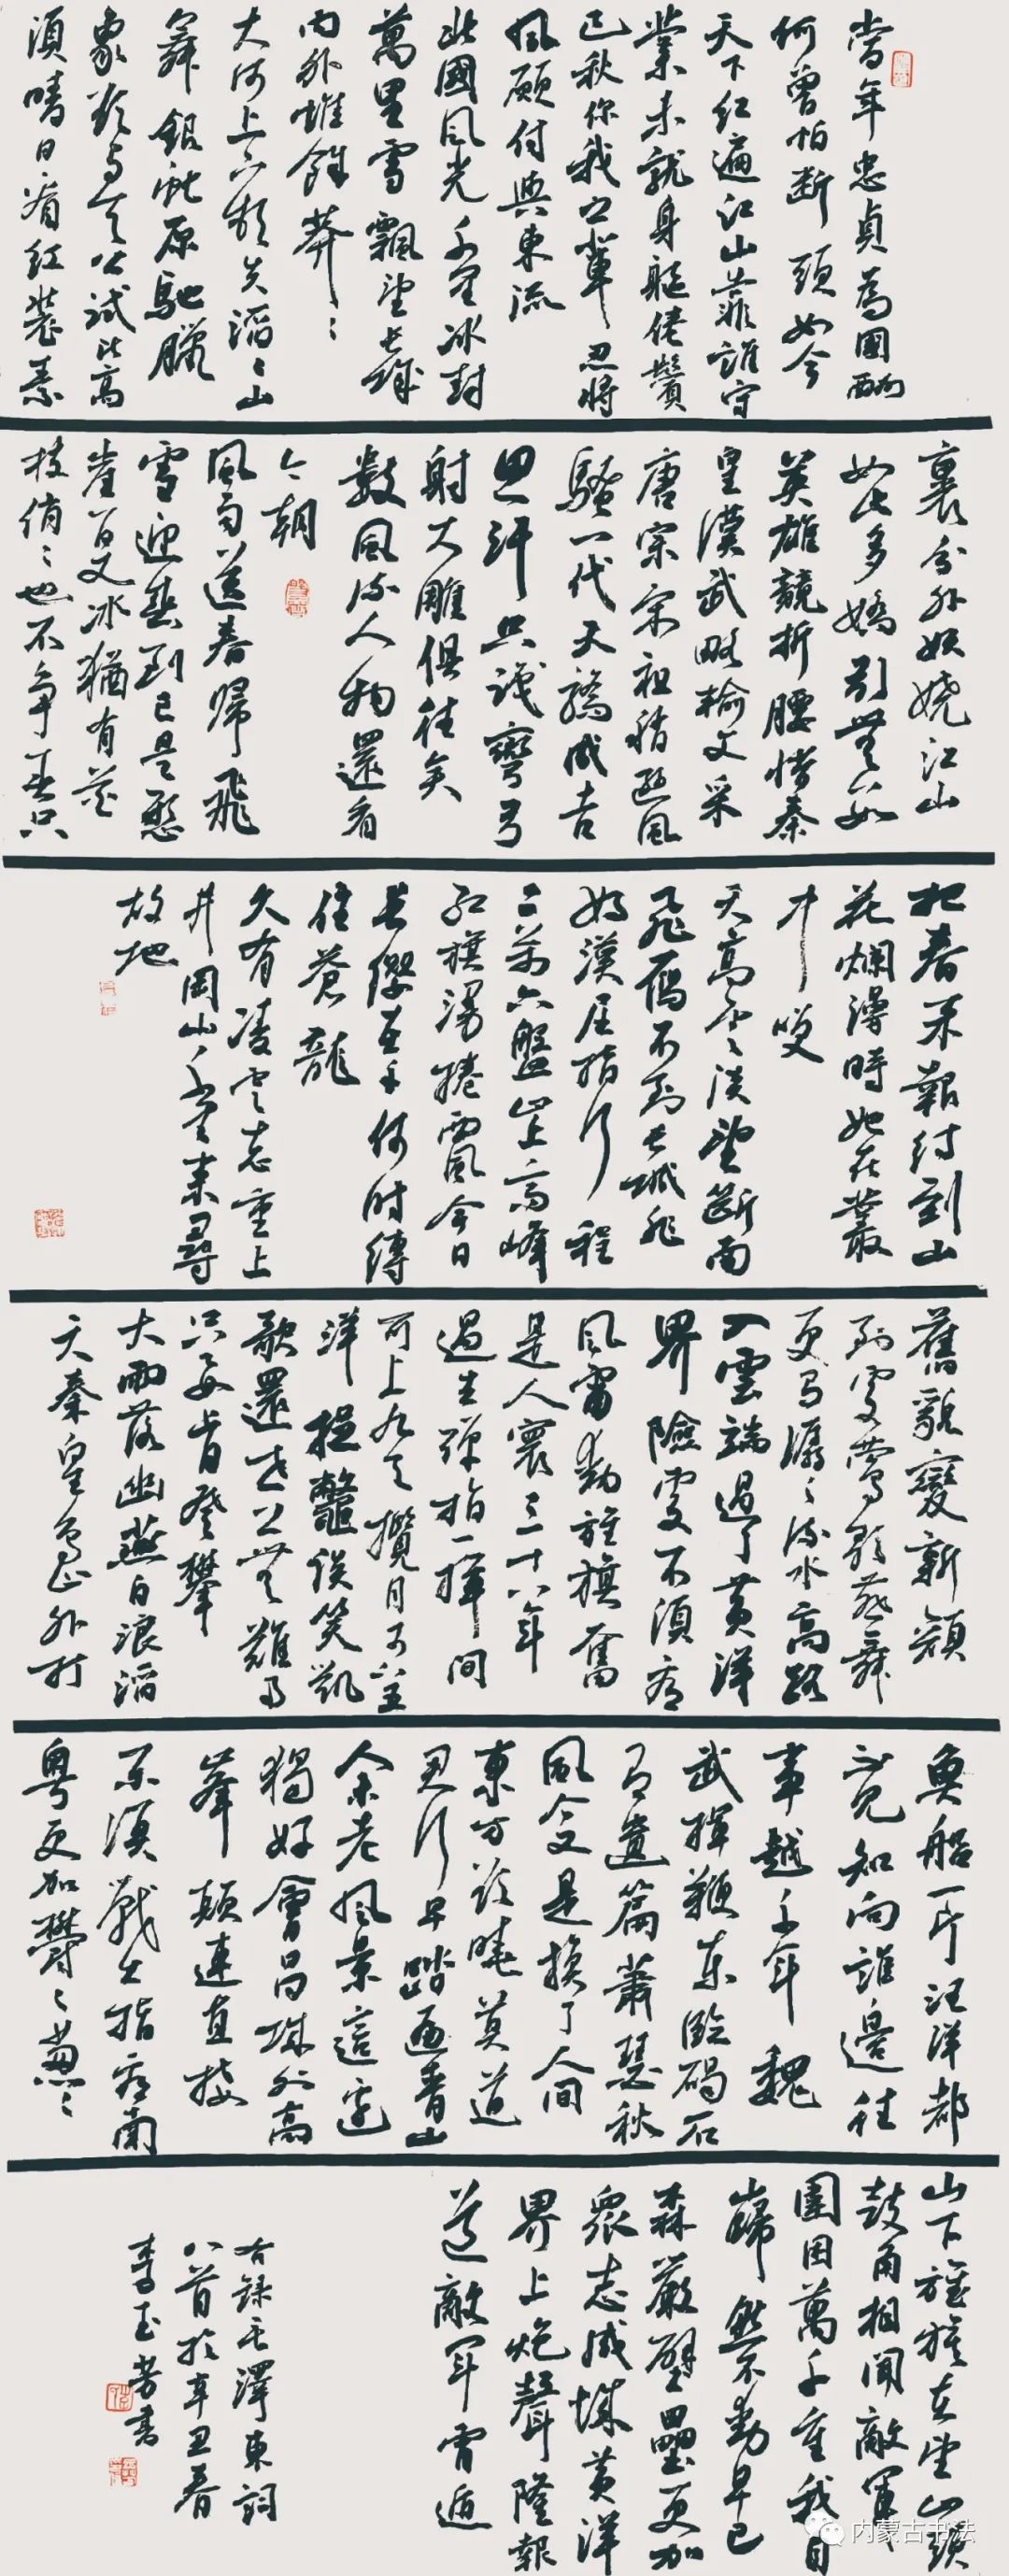 當年忠貞為國酬
何曾怕斷頭如今
天下紅遍江山靠誰守
業未就身軀倦鬢
已秋你我之輩忍將
夙願付與東流
北國風光千里冰封
萬里雪飄望長城
內外惟餘莽〻
大河上下頓失滔〻山
舞銀蛇原馳臘
象欲與天公試比高
須晴日看紅裝素
裹分外妖嬈江山
如此多嬌引無數
英雄競折腰惜秦
皇漢武略輸文采
唐宗宋祖稍遜風
騷一代天驕成吉
思汗只識彎弓
射大雕俱往矣
數風流人物還看
今朝
風雨送春歸飛
雪迎春到已是懸
崖百丈冰猶有花
枝俏〻也不爭春只
把春來報待到山
花爛漫時她在叢
中笑
天高雲淡望斷南
飛雁不到長城非
好漢屈指行程
二萬六盤山上高峰
紅旗漫捲西風今日
長纓在手何時縛
住蒼龍
久有凌雲志重上
井岡山千里來尋
故地
舊貌變新顏
到處鶯歌燕舞
更有潺〻流水高路
入雲端過了黃洋
界險處不須看
風雷動旌旗奮
是人寰三十八年
過去彈指一揮間
可上九天攬月可下五
洋捉鱉談笑凱
歌還世上無難事
只要肯登攀
大雨落幽燕白浪滔
天秦皇島外打
魚船一片汪洋都
不見知向誰邊往
事越千年魏
武揮鞭東臨碣石
有遺篇蕭瑟秋
風今又是換了人間
東方欲曉莫道
君行早踏遍青山
人未老風景這邊
獨好會昌城外高
峯顛連直接
東溟戰士指看南
粵更加鬱〻蔥〻
山下旌旗在望山頭
鼓角相聞敵軍
圍困萬千重我自
巋然不動早已
森嚴壁壘更加
眾志成城黃洋
界上炮聲隆報
道敵軍宵遁
右錄毛澤東詞
八首於辛丑春
李玉芳書
内蒙古书法